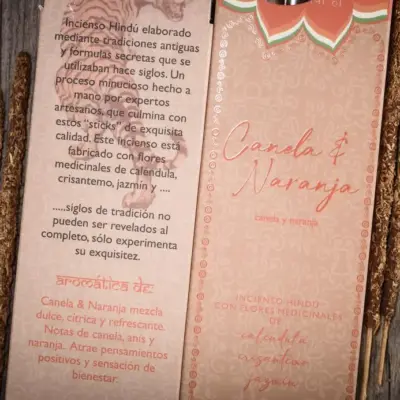 Incienso Hindú elaborado
mediante tradiciones antiguas
y formulas secretas que se
utilizaban hace siglos. Un
proceso minucioso hecho a
mano por expertos
artesaños, que culmina con
estos "sticks" de exquisita
calidad. Este Incienso está
fabricado con flores
medicinales de caléndula,
crisantemo, jazmín y ....
.....siglos de tradición no
pueden ser revelados al
completo, sólo experimenta
su exquisitez.
aromática de:
Canela & Naranja mezcla
dulce, cítrica y refrescante.
Notas de canela, anís y
naranja. Atrae pensamientos
positivos y sensación de
bienestar.
Canela &
Naranja
canela y naranja
INCIENSO HINDÚ
CON FLORES MEDICINALES
DE
caléndula
crisantemo
jazmín